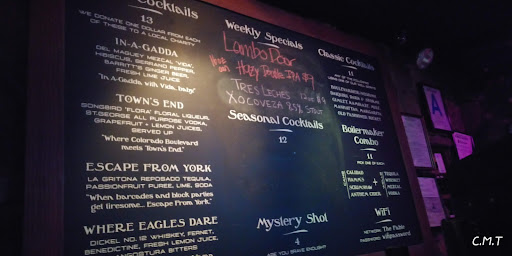 Cocktails
13
WE DONATE ONE DOLLAR FROM EACH
OF THESE TO A LOCAL CHARITY
IN-A-GADDA
DEL MAGUEY MEZCAL 'VIDA',
HIBISCUS, SERRANO PEPPER,
BARRITT'S GINGER BEER,
FRESH LIME JUICE
"In A-Gadda with Vida, baby!"
TOWN'S END
SONGBIRD 'FLORA' FLORAL LIQUEUR,
ST.GEORGE ALL PURPOSE VODKA,
GRAPEFRUIT + LEMON JUICES,
SERVED UP
"Where Colorado Boulevard
meets Town's End."
ESCAPE FROM YORK
LA GRITONA REPOSADO TEQUILA,
PASSIONFRUIT PUREE, LIME, SODA
"When barcades and block parties
get tiresome... Escape From York."
WHERE EAGLES DARE
DICKEL NO. 12 WHISKEY, FERNET,
BENEDICTINE, FRESH LEMON JUICE,
ANGOSTURA BITTERS
Weekly Specials
Lambo Door
Hazy Double IPA $9
TRES LECHES
XOCOVEZA 8.5% STOUT
Seasonal Cocktails
12
Mystery Shot
4
ARE YOU BRAVE ENOUGH?
Classic Cocktails
11
OLD FASHIONED
Boilermaker
Combo
11
PICK ONE OF EACH
CALIDAD
HAMM'S
ANTHEM CIDER
TEQUILA
WHISKEY
MEZCAL
VODKA
WiFi
NETWORK
PASSWORD
A
C.M.T